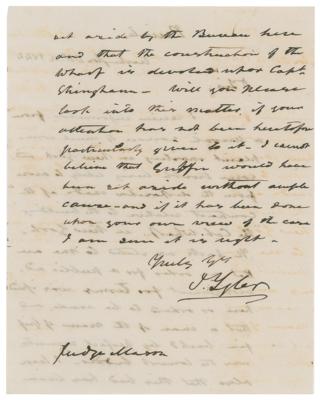 set aside by the Bureau here
and that the construction of the
Wharf is devolved upon Capt.
Skinghame - Will you please
look into this matter, if your
attention has not been heretofore
particularly given to it. I cannot
believe that Griffin would have
been set aside without ample
cause - and if it has been done
upon your own view of the case
I am sure it is right -
Truly Yrs
J. Tyler
Judge Mason